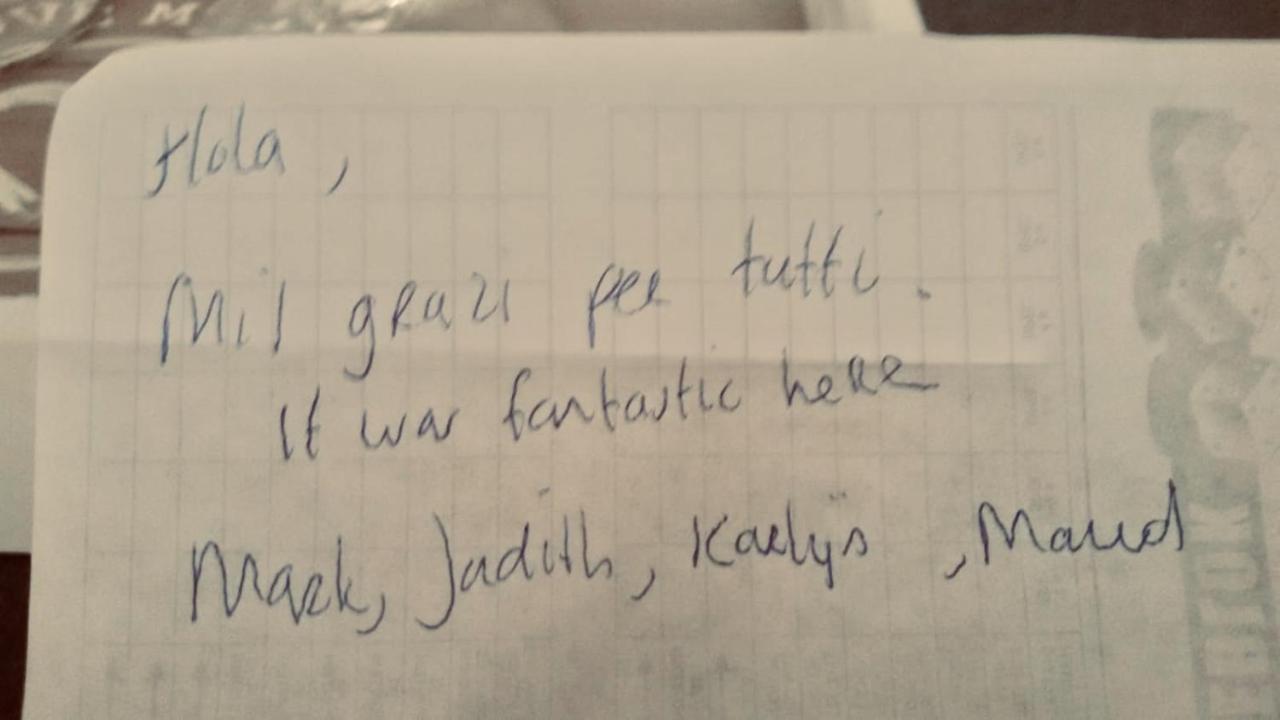 Hola,
Mil grazi per tutti.
It was fantastic here
Mark, Judith, Karlijn, Maud